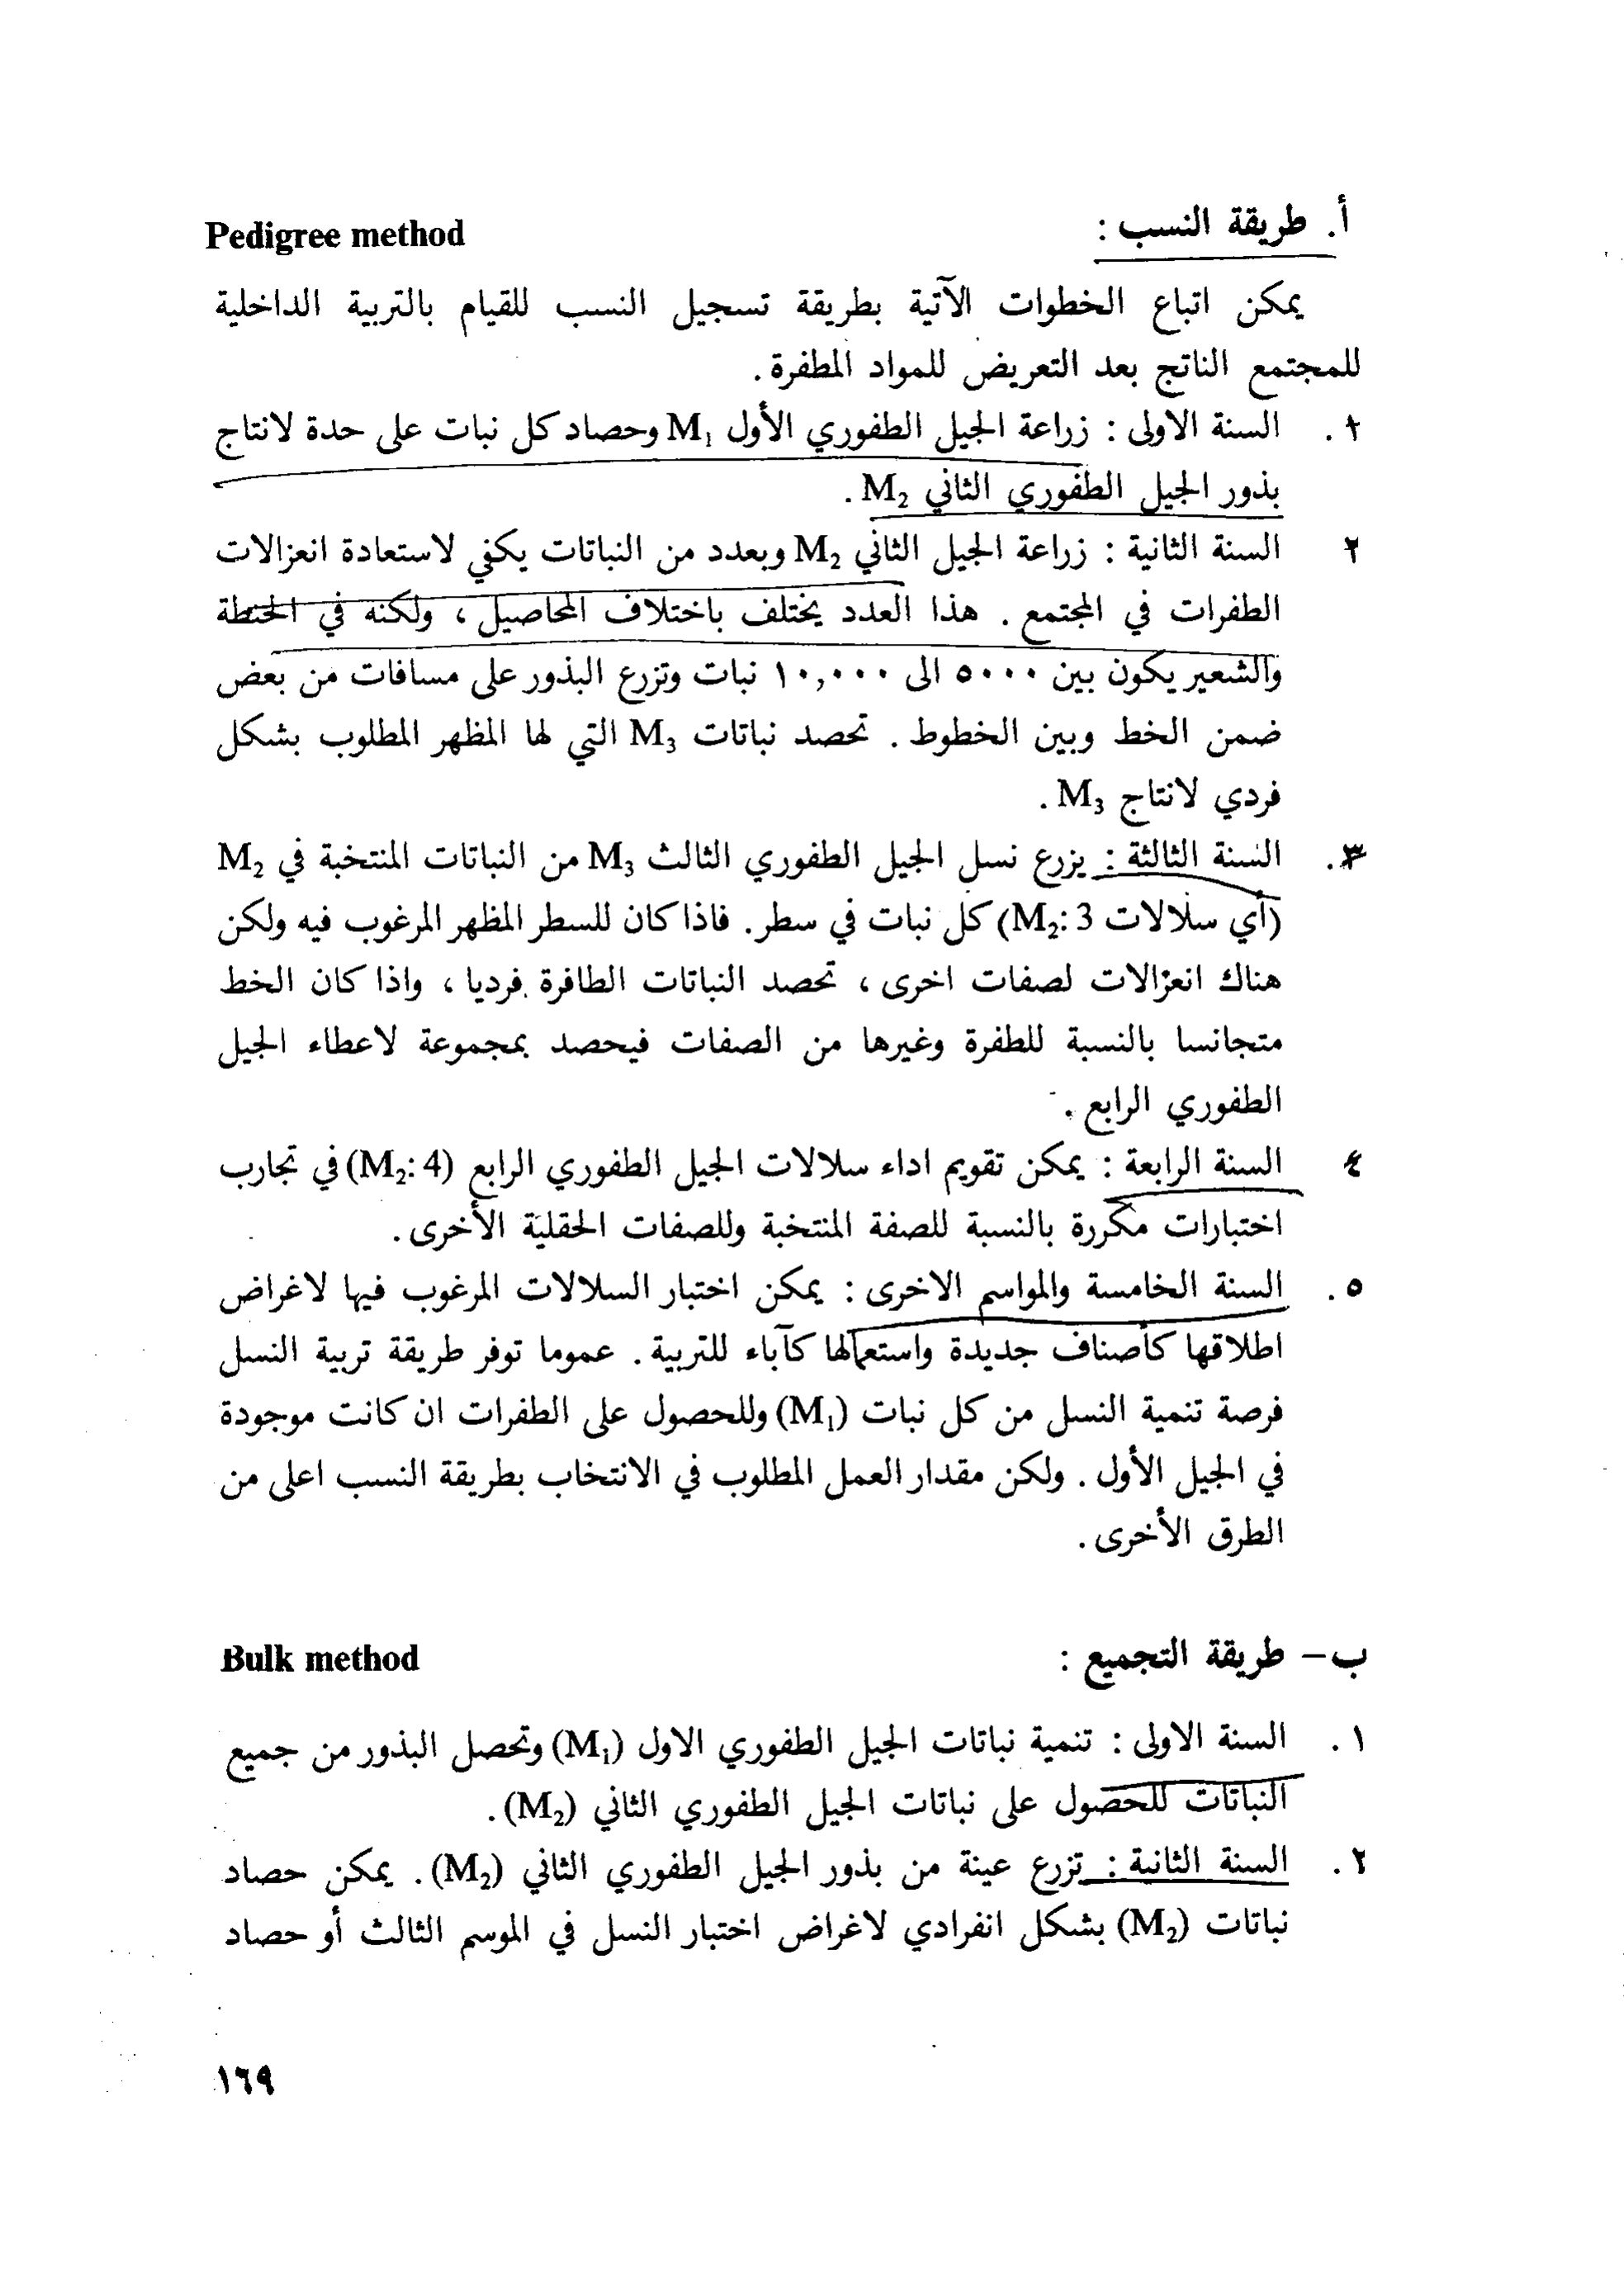 أ. طريقة النسب : Pedigree method
يمكن اتباع الخطوات الآتية بطريقة تسجيل النسب للقيام بالتربية الداخلية
للمجتمع الناتج بعد التعريض للمواد المطفرة .
١ . السنة الاولى : زراعة الجيل الطفوري الأول M₁ وحصاد كل نبات على حدة لانتاج
بذور الجيل الطفوري الثاني M₂ .
٢ السنة الثانية : زراعة الجيل الثاني M₂ وبعدد من النباتات يكفي لاستعادة انعزالات
الطفرات في المجتمع . هذا العدد يختلف باختلاف المحاصيل ، ولكنه في الحنطة
والشعير يكون بين ٥٠٠٠ الى ١٠,٠٠٠ نبات وتزرع البذور على مسافات من بعض
ضمن الخط وبين الخطوط . تحصد نباتات M₃ التي لها المظهر المطلوب بشكل
فردي لانتاج M₃ .
٣. السنة الثالثة : يزرع نسل الجيل الطفوري الثالث M₃ من النباتات المنتخبة في M₂
(أي سلالات M₂: 3) كل نبات في سطر. فاذا كان للسطر المظهر المرغوب فيه ولكن
هناك انعزالات لصفات اخرى ، تحصد النباتات الطافرة فرديا ، واذا كان الخط
متجانسا بالنسبة للطفرة وغيرها من الصفات فيحصد بمجموعة لاعطاء الجيل
الطفوري الرابع .
٤ السنة الرابعة : يمكن تقويم اداء سلالات الجيل الطفوري الرابع (M₂: 4) في تجارب
اختبارات مكررة بالنسبة للصفة المنتخبة وللصفات الحقلية الأخرى .
٥ . السنة الخامسة والمواسم الاخرى : يمكن اختبار السلالات المرغوب فيها لاغراض
اطلاقها كأصناف جديدة واستعمالها كآباء للتربية . عموما توفر طريقة تربية النسل
فرصة تنمية النسل من كل نبات (M₁) وللحصول على الطفرات ان كانت موجودة
في الجيل الأول . ولكن مقدار العمل المطلوب في الانتخاب بطريقة النسب اعلى من
الطرق الأخرى .
ب– طريقة التجميع : Bulk method
١ . السنة الاولى : تنمية نباتات الجيل الطفوري الاول (M₁) وتحصل البذور من جميع
النباتات للحصول على نباتات الجيل الطفوري الثاني (M₂) .
٢ . السنة الثانية : تزرع عينة من بذور الجيل الطفوري الثاني (M₂) . يمكن حصاد
نباتات (M₂) بشكل انفرادي لاغراض اختبار النسل في الموسم الثالث أو حصاد
١٦٩